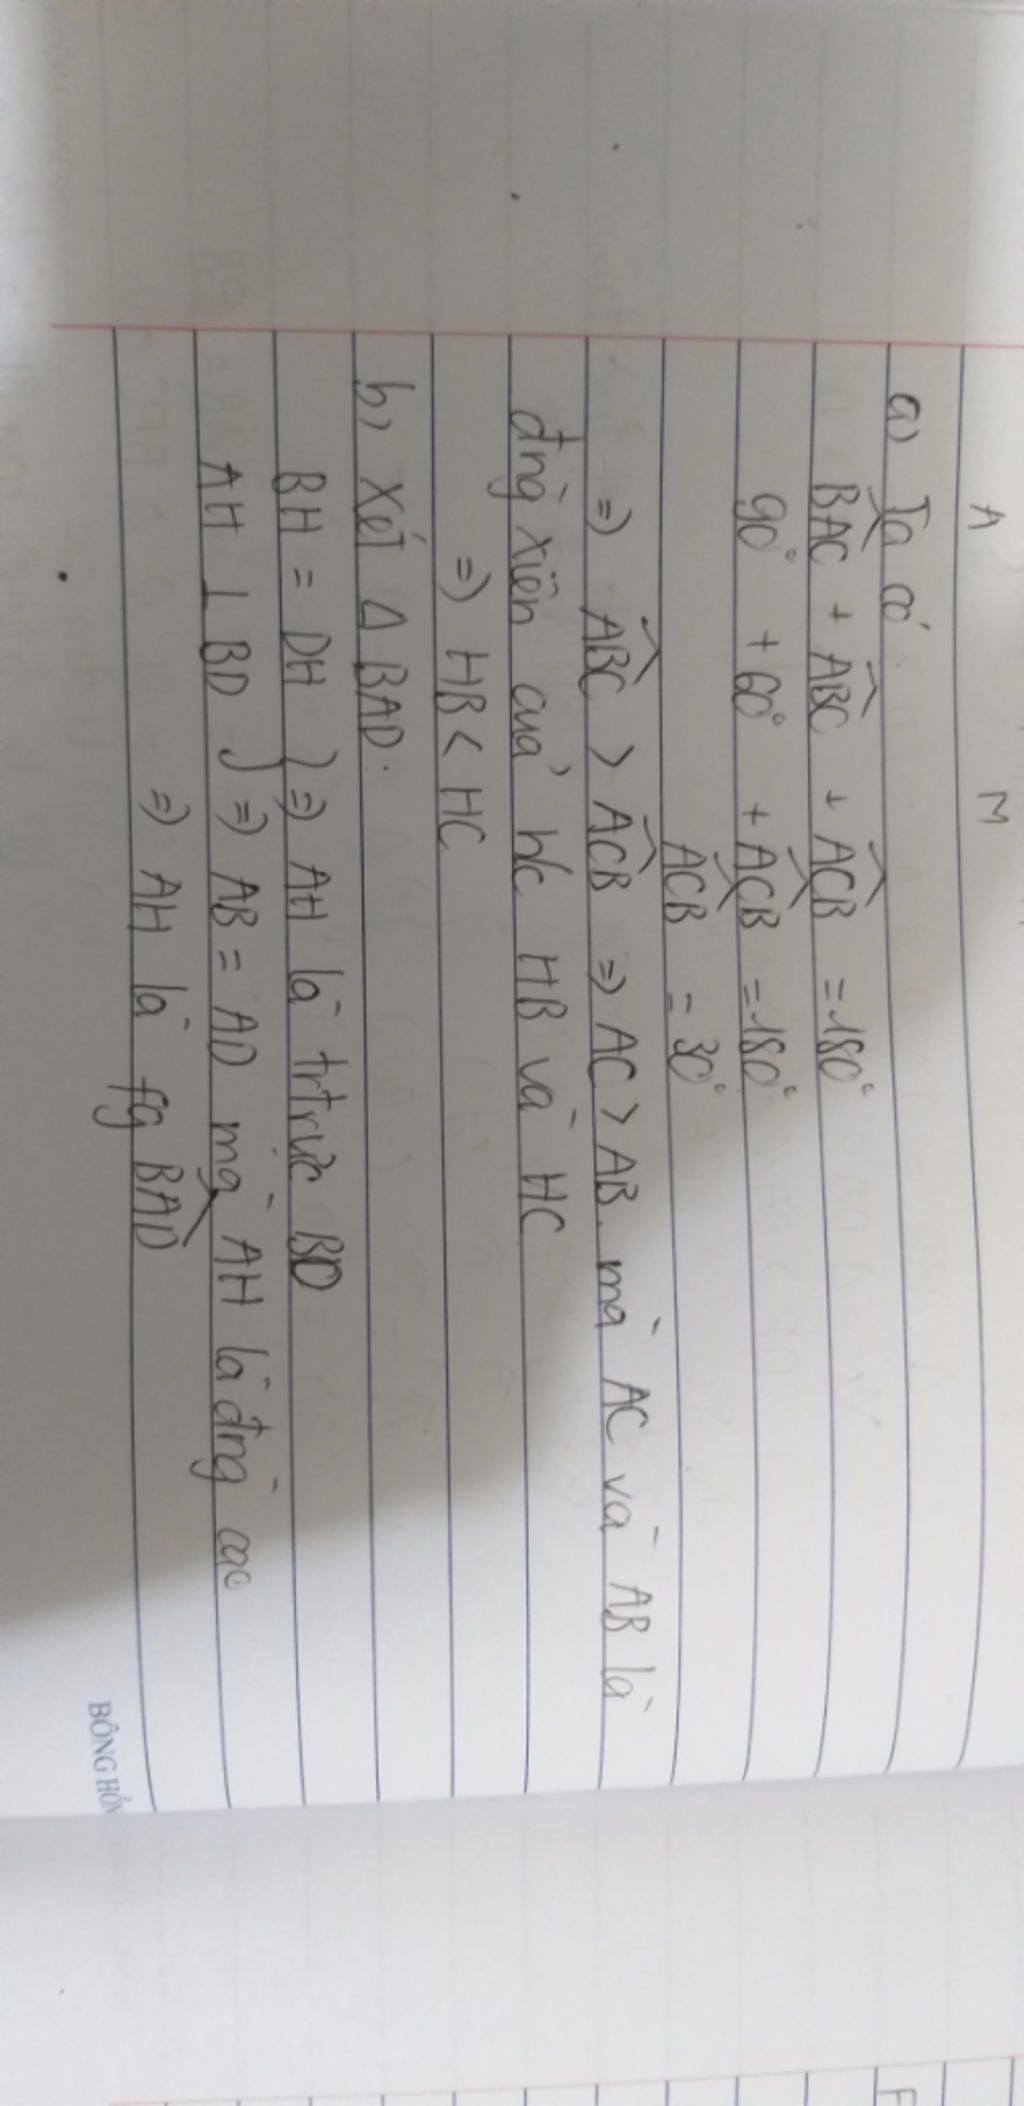 A M
a) Ta có
BAC + ABC + ACB = 180°
90° + 60° + ACB = 180°
ACB = 30°
=> ABC > ACB => AC > AB. mà AC và AB là
đng xiên của h/c HB và HC
=> HB < HC
b) Xét Δ BAD.
BH = DH } => AH là trtrực BD
AH ⊥ BD } => AB = AD mà AH là đng cao
=> AH là fg BAD
BÔNG HỒN
F